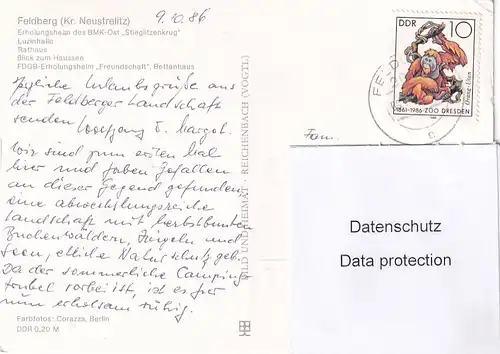 Feldberg (Kr. Neustrelitz)
9.10.86
Erholungsheim des BMK-Ost „Stieglitzenkrug"
Luzinhalle
Rathaus
Blick zum Haussee
FDGB-Erholungsheim „Freundschaft", Bettenhaus
Herzliche Urlaubsgrüße aus
der Feldberger Landschaft
senden Wolfgang & Margot.
Wir sind zum ersten Mal
hier und haben Gefallen
an dieser Gegend gefunden,
eine abwechslungsreiche
Landschaft mit herbstbunten
Buchenwäldern, Hügeln und
Seen, etliche Naturschutzgeb.
Da der sommerliche Camping-
trubel vorbei ist, ist es hier
nun erholsam ruhig.
Farbfotos: Corazza, Berlin
DDR 0,20 M
BILD UND HEIMAT · REICHENBACH (VOGTL)
DDR 10
Orang-Utan
1861-1986 · ZOO DRESDEN
FELD
Fam.
Datenschutz
Data protection